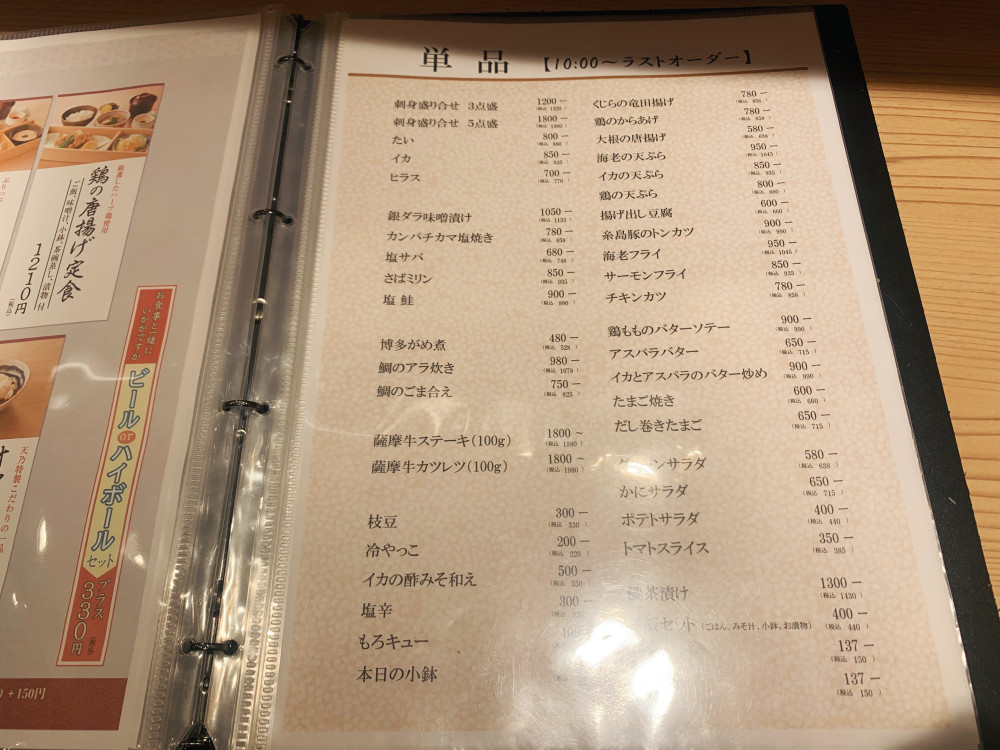 単品 【10:00～ラストオーダー】
刺身盛り合せ 3点盛 1200－ (税込 1320)
刺身盛り合せ 5点盛 1800－ (税込 1980)
たい 800－ (税込 880)
イカ 850－ (税込 935)
ヒラス 700－ (税込 770)
銀ダラ味噌漬け 1050－ (税込 1155)
カンパチカマ塩焼き 780－ (税込 858)
塩サバ 680－ (税込 748)
さばミリン 850－ (税込 935)
塩鮭 900－ (税込 990)
博多がめ煮 480－ (税込 528)
鯛のアラ炊き 980－ (税込 1078)
鯛のごま合え 750－ (税込 825)
薩摩牛ステーキ(100g) 1800～ (税込 1980)
薩摩牛カツレツ(100g) 1800～ (税込 1980)
枝豆 300－ (税込 330)
冷やっこ 200－ (税込 220)
イカの酢みそ和え 500－ (税込 550)
塩辛 300－
もろキュー
本日の小鉢
くじらの竜田揚げ 780－ (税込 858)
鶏のからあげ 780－ (税込 858)
大根の唐揚げ 580－ (税込 638)
海老の天ぷら 950－ (税込 1045)
イカの天ぷら 850－ (税込 935)
鶏の天ぷら 800－ (税込 880)
揚げ出し豆腐 600－ (税込 660)
糸島豚のトンカツ 900－ (税込 990)
海老フライ 950－ (税込 1045)
サーモンフライ 850－ (税込 935)
チキンカツ 780－ (税込 858)
鶏もものバターソテー 900－ (税込 990)
アスパラバター 650－ (税込 715)
イカとアスパラのバター炒め 900－ (税込 990)
たまご焼き 600－ (税込 660)
だし巻きたまご 650－ (税込 715)
サラダ 580－ (税込 638)
かにサラダ 650－ (税込 715)
ポテトサラダ 400－ (税込 440)
トマトスライス 350－ (税込 385)
茶漬け 1300－ (税込 1430)
セット (ごはん、みそ汁、小鉢、お漬物) 400－ (税込 440)
137－ (税込 150)
137－ (税込 150)
厳選したハーブ鶏使用
鶏の唐揚げ定食
ご飯、味噌汁、小鉢、茶碗蒸し、漬物付
1210円 (税込)
お食事と一緒に
いかがですか
ビールorハイボール
セット
プラス
330円 (税込)
天乃特製こだわりの一品
+150円